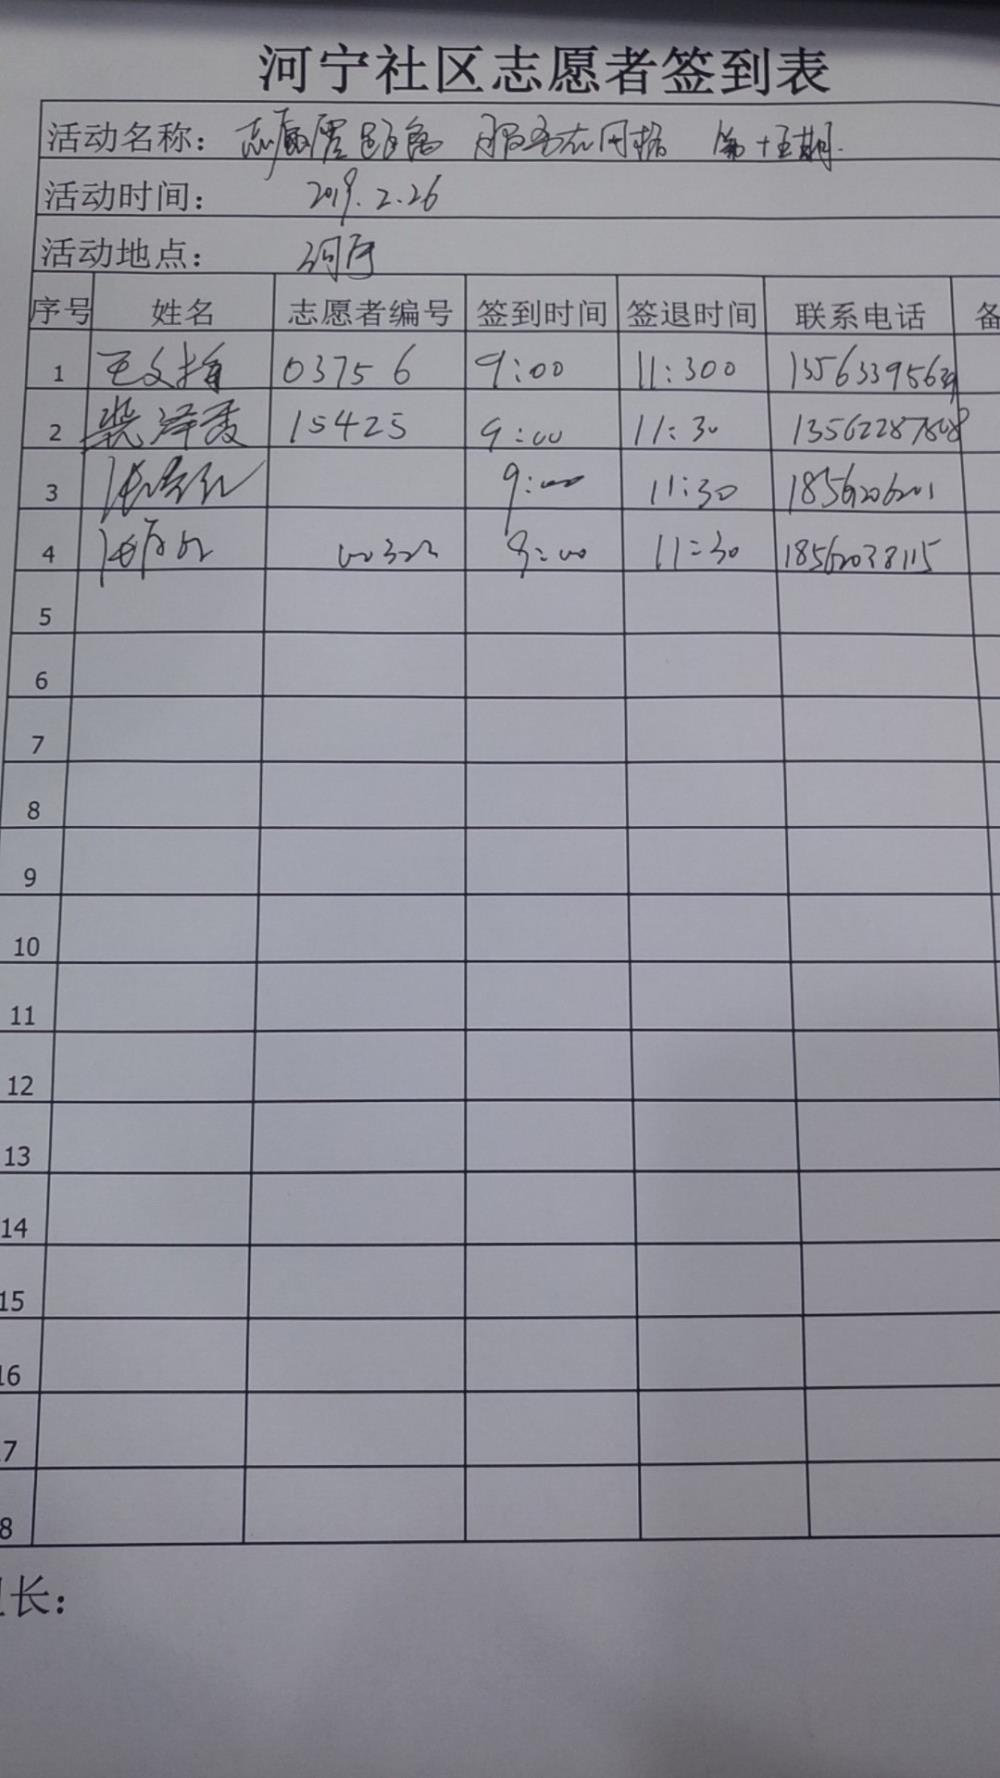 河宁社区志愿者签到表
活动名称：志愿零距离 服务在网格 第十五期.
活动时间：2019.2.26
活动地点：河宁
序号 姓名 志愿者编号 签到时间 签退时间 联系电话 备
1 03756 9:00 11:300
2 15425 9:00 11:30 13562287808
3 9:00 11:30 1856206201
4 00322 9:00 11:30 18562038115
5
6
7
8
9
10
11
12
13
14
15
16
7
8
长：